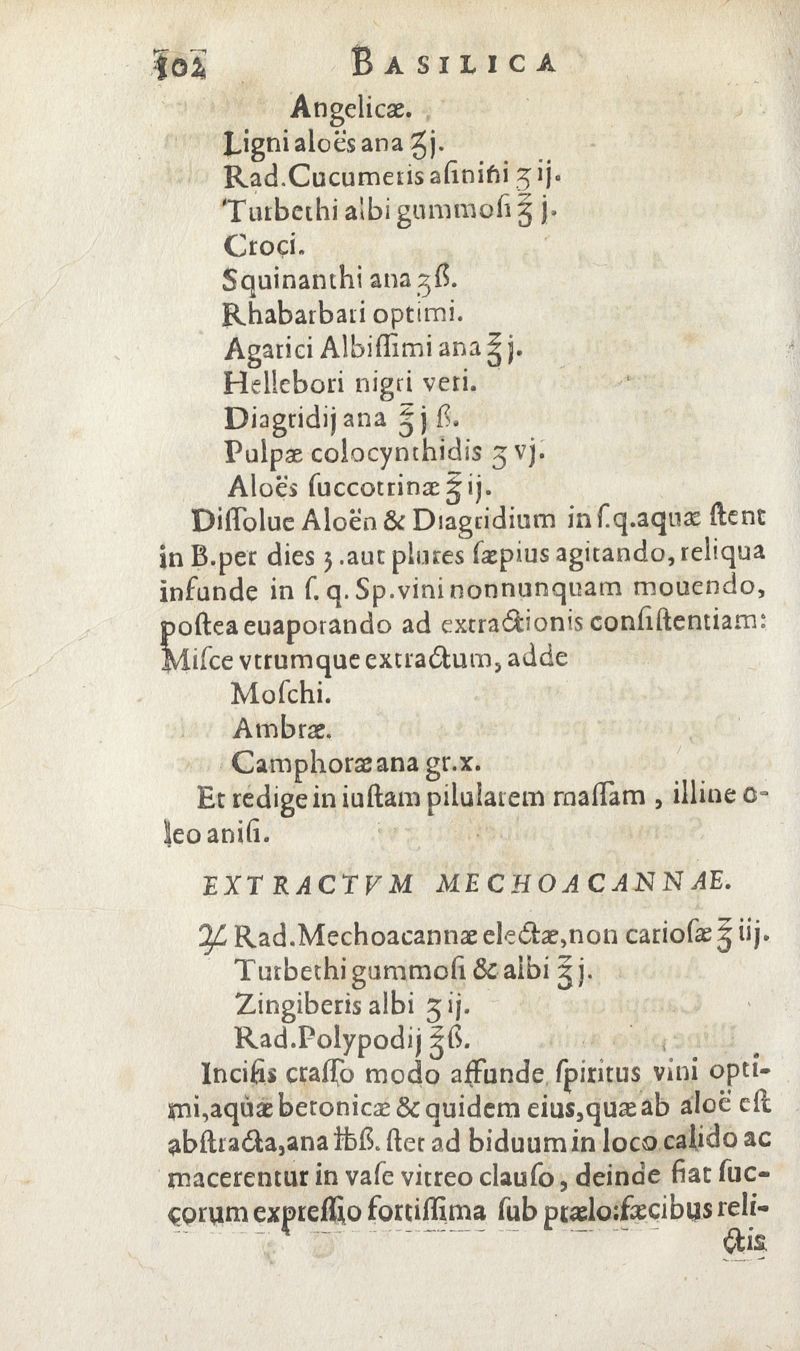 102 BASILICA
Angelicæ.
Ligni aloës ana ℥j.
Rad.Cucumeris aſinini ʒ ij.
Turbethi albi gummoſi ℥ j.
Croci.
Squinanthi ana ʒß.
Rhabarbari optimi.
Agarici Albiſſimi ana ℥ j.
Hellebori nigri veri.
Diagridij ana ℥ j ß.
Pulpæ colocynthidis ʒ vj.
Aloës ſuccotrinæ ℥ ij.
Diſſolue Aloën & Diagridium in ſ.q.aquæ ſtent
in B.per dies 3 .aut plures ſæpius agitando, reliqua
infunde in ſ. q. Sp.vini nonnunquam mouendo,
poſtea euaporando ad extractionis conſiſtentiam:
Miſce vtrumque extractum, adde
Moſchi.
Ambræ.
Camphoræ ana gr.x.
Et redige in iuſtam pilularem maſſam , illine o-
leo aniſi.
EXTRACTVM MECHOACANNAE.
♃ Rad.Mechoacannæ electæ,non carioſæ ℥ iij.
Turbethi gummoſi & albi ℥ j.
Zingiberis albi ʒ ij.
Rad.Polypodij ℥ß.
Inciſis craſſo modo affunde ſpiritus vini opti-
mi,aquæ betonicæ & quidem eius,quæ ab aloë eſt
abſtracta,ana ℔ß. ſtet ad biduum in loco calido ac
macerentur in vaſe vitreo clauſo , deinde fiat ſuc-
corum expreſſio fortiſſima ſub prælo:fæcibus reli-
ctis